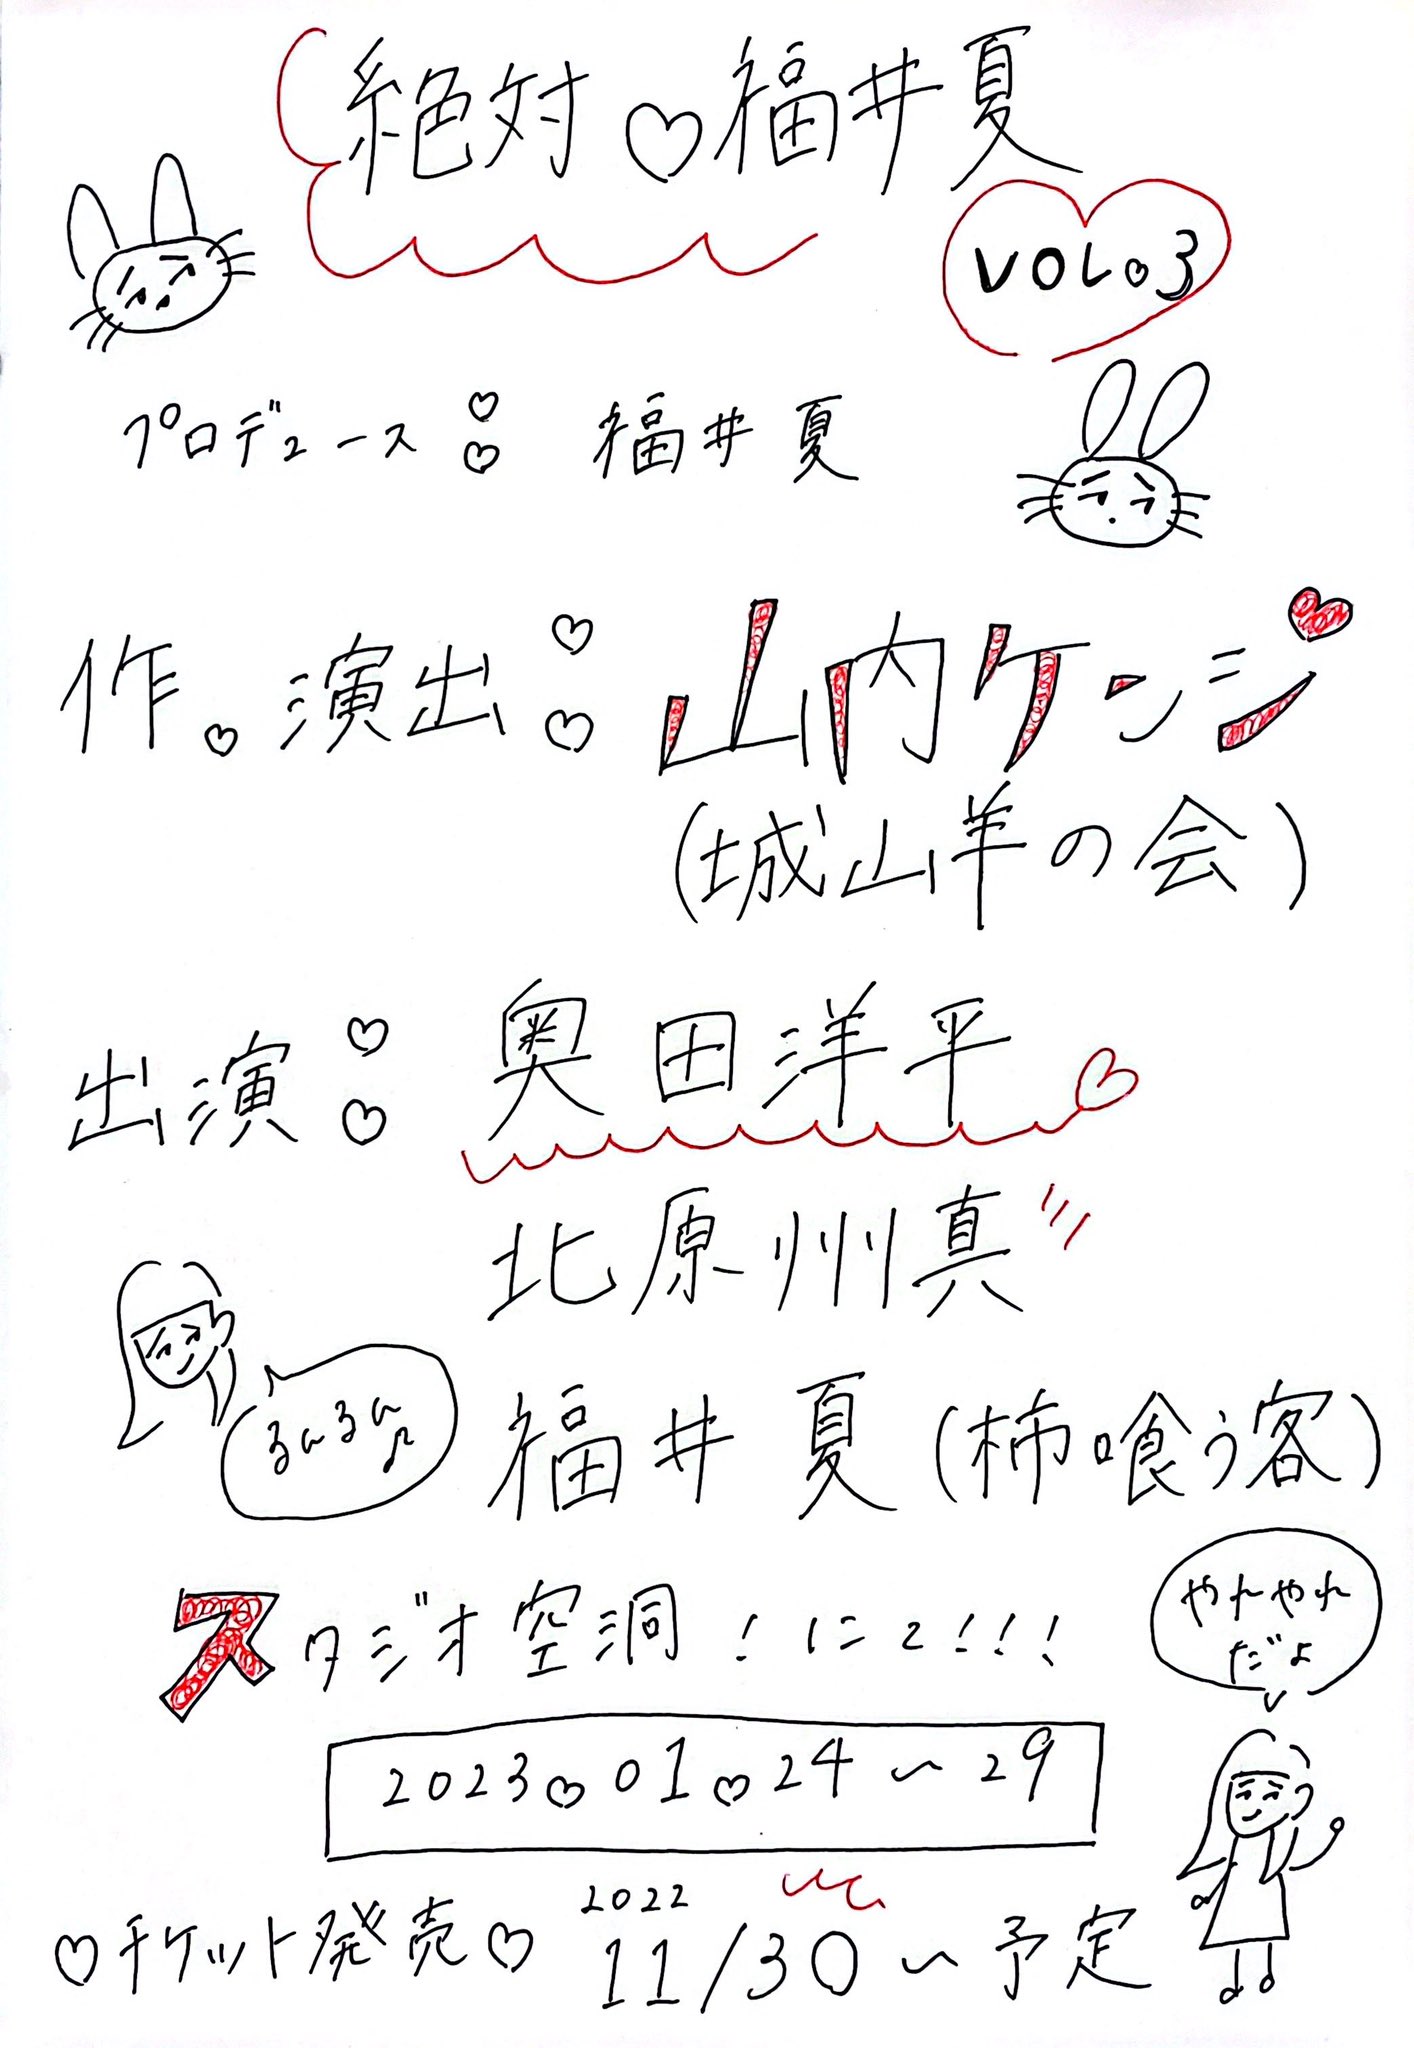 絶対♡福井夏
VOL.3
プロデュース：福井夏
作。演出：山内ケンジ
(城山羊の会)
出演：奥田洋平
北原州真
るんるん♪
福井夏(柿喰う客)
スタジオ空洞！にて！！！
やれやれ
だよ
2023.01.24〜29
♡チケット発売♡ 2022 11/30〜予定